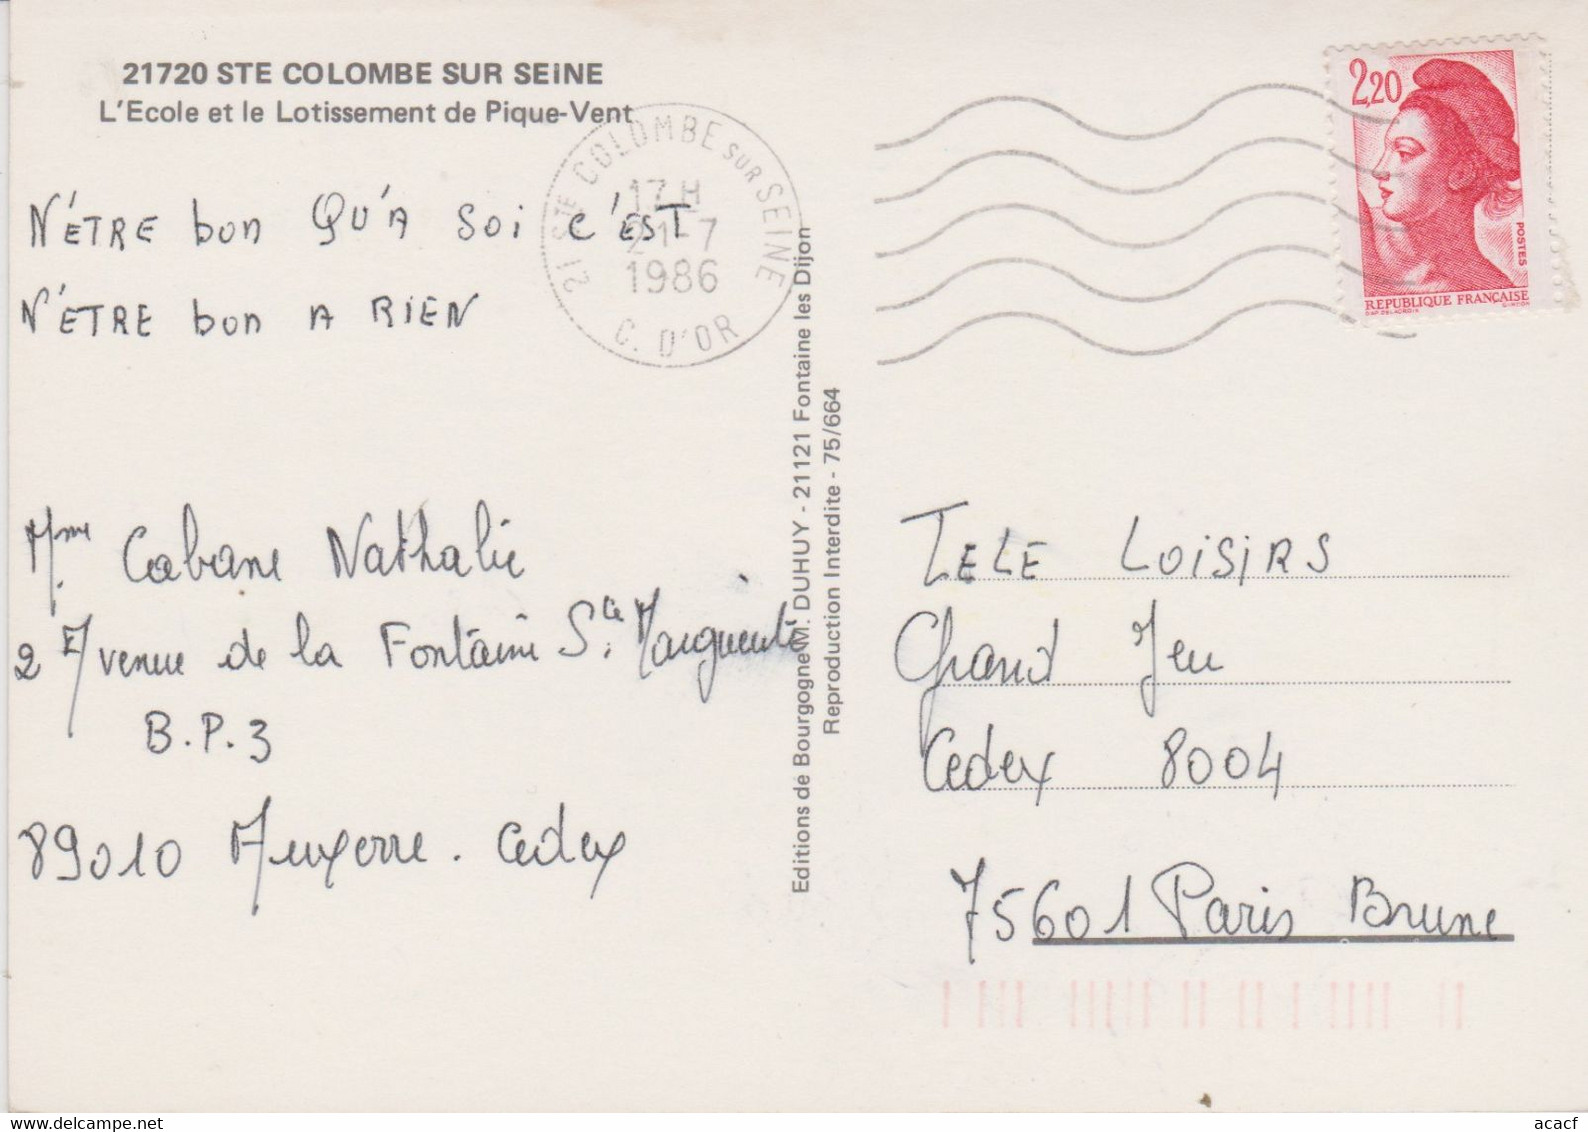 21720 STE COLOMBE SUR SEINE
L'Ecole et le Lotissement de Pique-Vent
N'ÊTRE bon QU'A SOI C'EST
N'ÊTRE bon A RIEN
21 STE COLOMBE SUR SEINE
17 H
21-7
1986
C. D'OR
2,20
POSTES
REPUBLIQUE FRANÇAISE
Mme Cabane Nathalie
2 Avenue de la Fontaine Ste Marguerite
B.P.3
89010 Auxerre. Cedex
Editions de Bourgogne M. DUHUY - 21121 Fontaine les Dijon
Reproduction Interdite - 75/664
TELE LOISIRS
Grand Jeu
Cedex 8004
75601 Paris Brune
www.delcampe.net
acacf